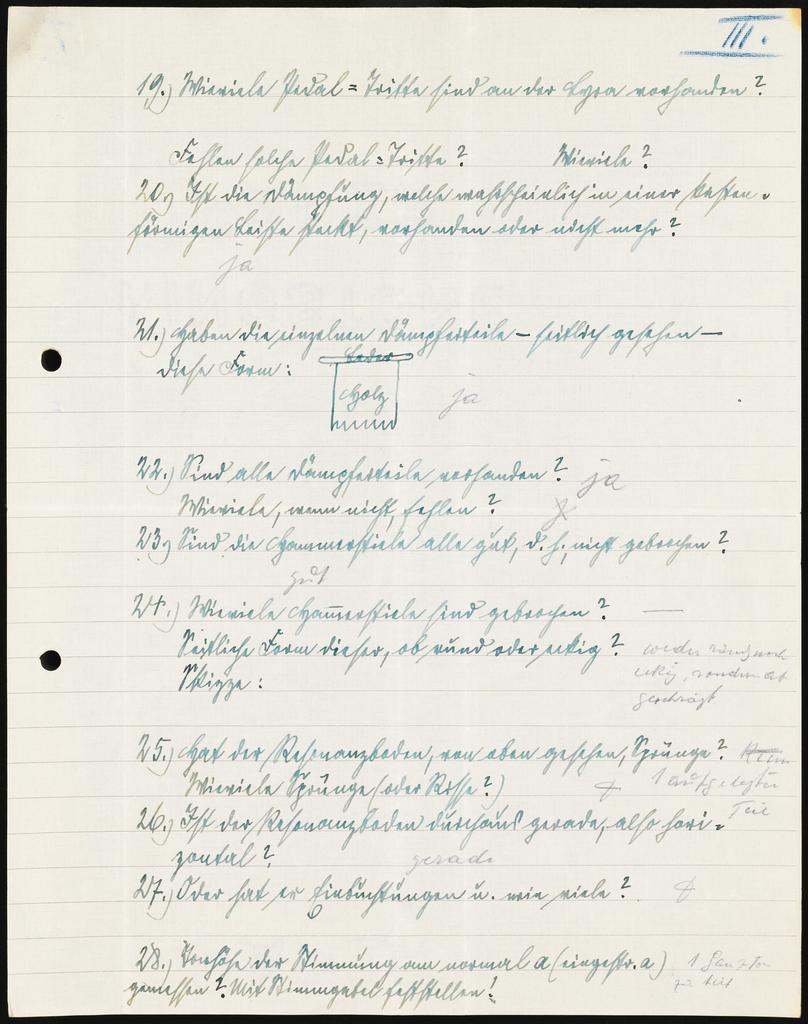 III.
19.) Wieviele Pedal=Tritte sind an der Lyra vorhanden?
Fehlen solche Pedal=Tritte? Wieviele?
20.) Ist die Dämpfung, welche wahrscheinlich in einer kasten-
förmigen Leiste steckt, vorhanden oder nicht mehr?
ja
21.) Haben die einzelnen Dämpferteile – seitlich gesehen –
diese Form: Leder
Holz ja
22.) Sind alle Dämpferteile vorhanden? ja
Wieviele, wenn nicht, fehlen?
23.) Sind die Hammerstiele alle gut, d. h. nicht gebrochen?
gut
24.) Wieviele Ham̅erstiele sind gebrochen? —
Seitliche Form dieser, ob rund oder eckig? weder rund noch
Skizze: eckig, sondern ab
geschrägt
25.) Hat der Resonanzboden, von oben gesehen, Sprünge?
Wieviele Sprünge (oder Risse?) 1 aufgelegter
26.) Ist der Resonanzboden durchaus gerade, also hori- Teil
zontal? gerade
27.) Oder hat er Einbuchtungen u. wie viele?
28.) Tonhöhe der Stimmung am normal a (eingestr. a) 1 Ganzton
gemessen? Mit Stimmgabel feststellen! zu tief